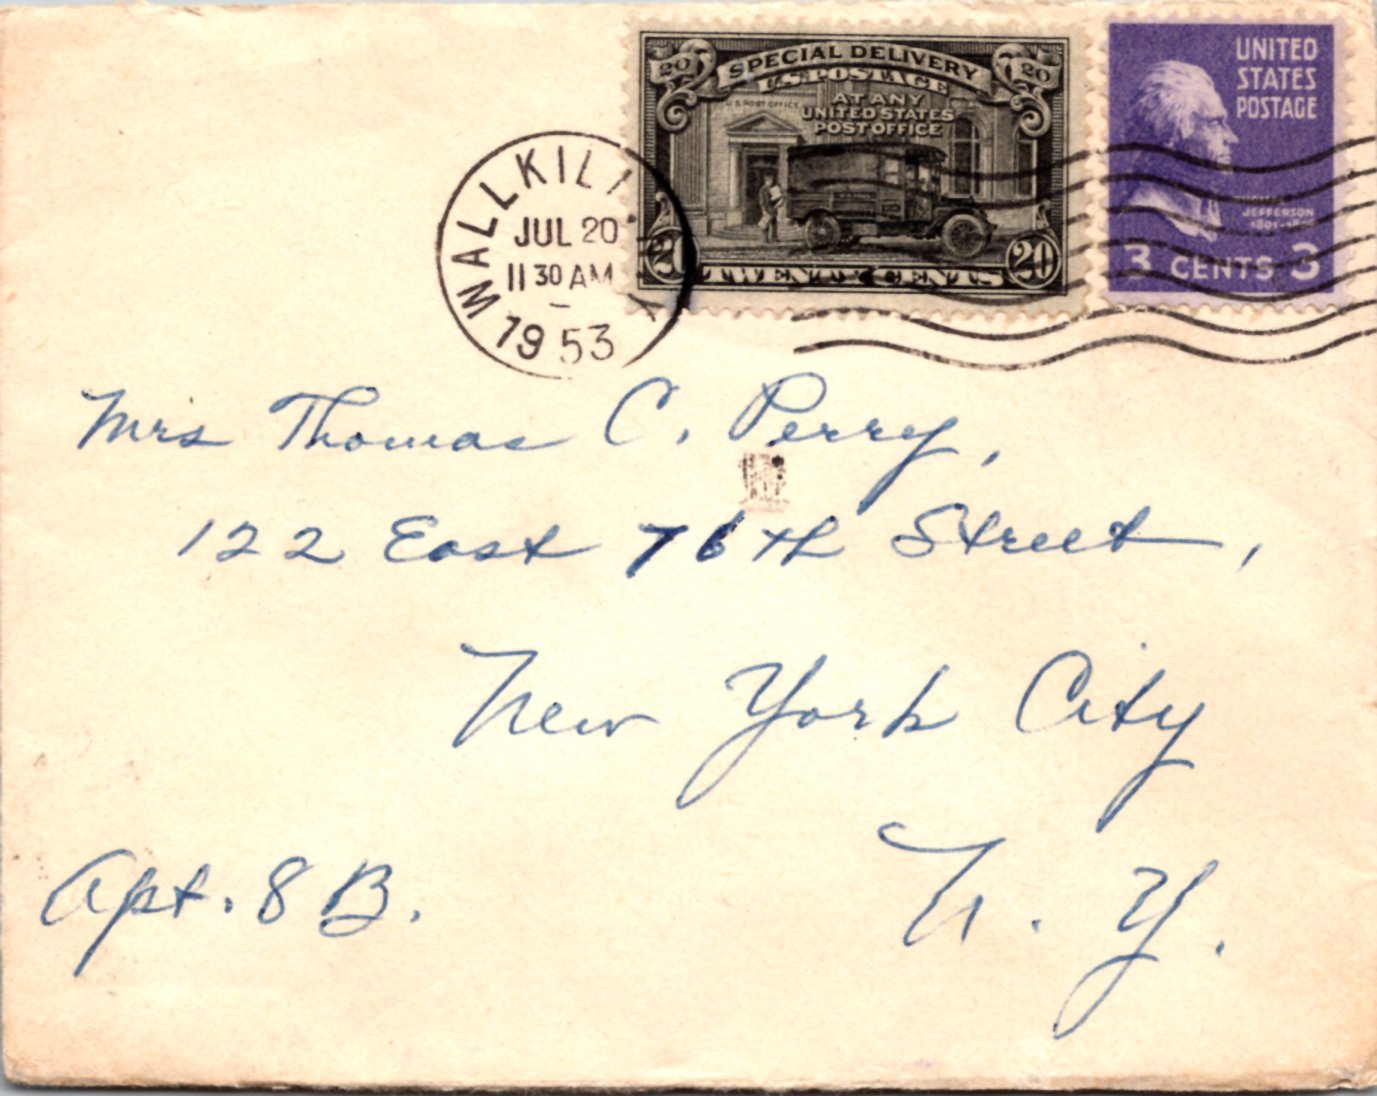 20 SPECIAL DELIVERY 20
U.S. POSTAGE
U.S. POST OFFICE
AT ANY
UNITED STATES
POST OFFICE
20 TWENTY CENTS 20
UNITED
STATES
POSTAGE
JEFFERSON
3 CENTS 3
WALLKILL
JUL 20
11 30 AM
1953
Mrs Thomas C. Perry,
122 East 76th Street,
New York City
N. Y.
Apt. 8 B.